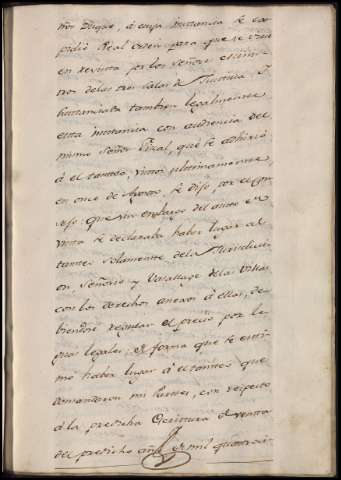 ñor Duque, á cuya instancia se ex
pidió Real orden para que se viese
en revista por los Señores Minis
tros de las tres Salas de Justicia. Y
substanciada tambien legalmente
esta instancia con audiencia del
mismo Señor Fiscal, que se adhirió
á el tanteo, visto ultimamente
en once de Agosto, se dijo por el Con
sejo: que sin embargo del auto de
vista se declaraba haber lugar al
tanteo solamente de la Jurisdicci
on, Señorio y Vasallage de las Villas
con los derechos anexos á ellas, de
biendose regular el precio por le
yes legales; de forma que se esti
mó haber lugar á el tanteo que
demandaron mis Partes, con respecto
á la predicha Escritura de venta
del predicho año de mil quatroci